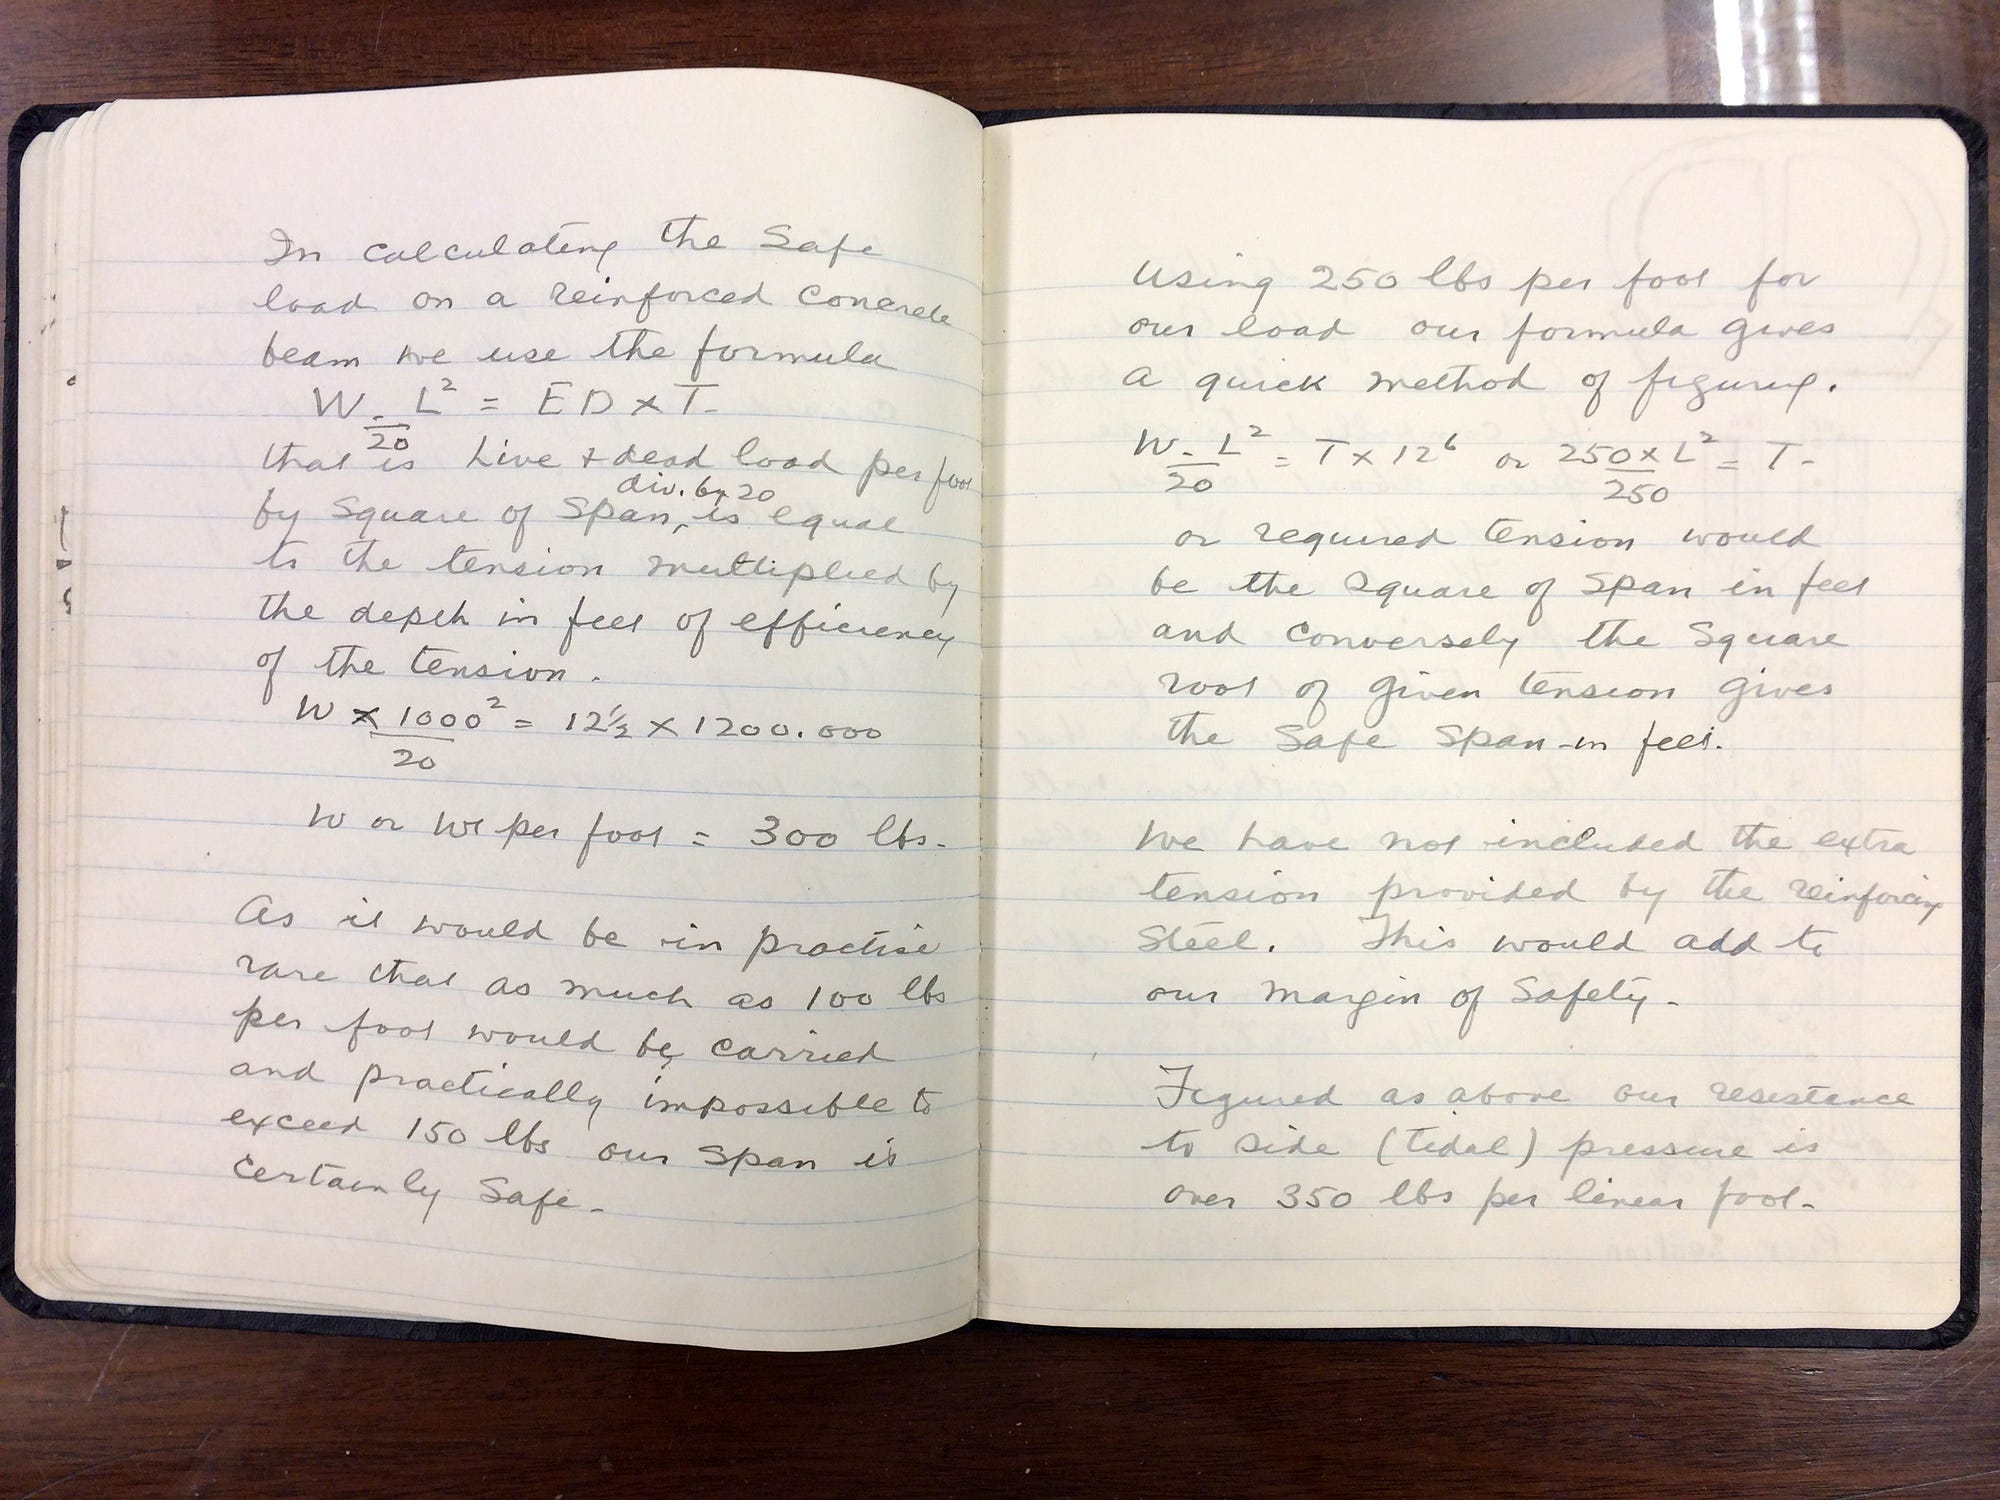 In calculating the Safe
load on a reinforced concrete
beam we use the formula
W. L² = ED x T.
20
that is Live + dead load per foot
div. by 20
by Square of Span, is equal
to the tension multiplied by
the depth in feet of efficiency
of the tension.
W x 1000² = 12½ x 1200.000
20
W or Wt per foot = 300 lbs.
As it would be in practise
rare that as much as 100 lbs
per foot would be carried
and practically impossible to
exceed 150 lbs our Span is
certainly Safe.
Using 250 lbs per foot for
our load our formula gives
a quick method of figuring.
W. L² = T x 12⁶ or 250 x L² = T.
20 250
or required tension would
be the square of Span in feet
and conversely the Square
root of given tension gives
the Safe Span in feet.
We have not included the extra
tension provided by the reinforcing
Steel. This would add to
our margin of Safety.
Figured as above our resistance
to side (tidal) pressure is
over 350 lbs per linear foot.